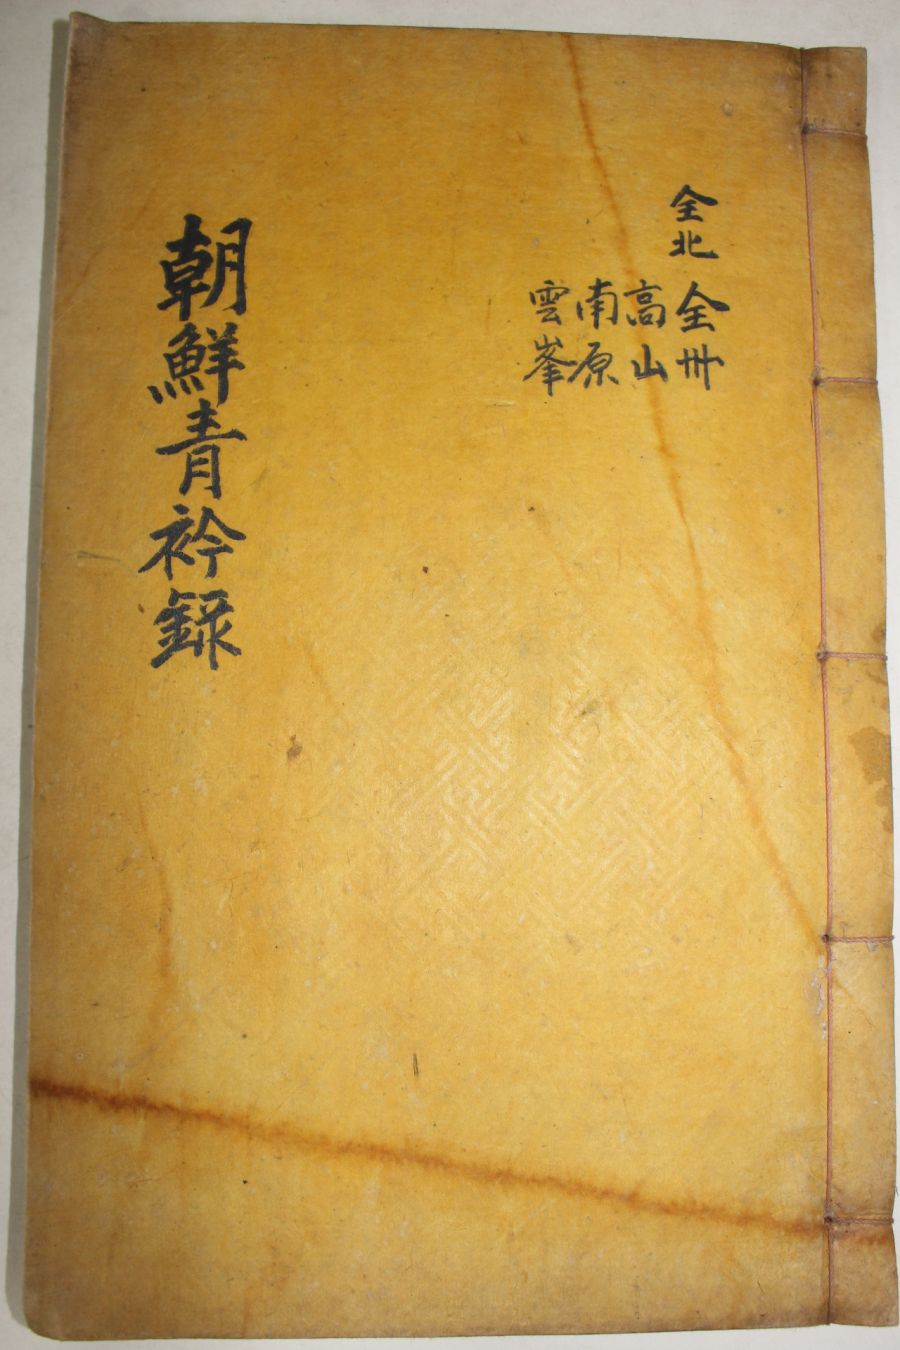 全北
全州
高山
南原
雲峯
朝鮮青衿錄